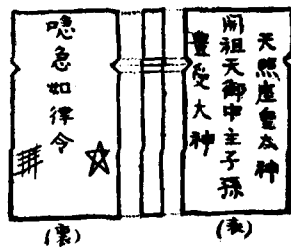 天照座皇太神
開祖天御中主子孫
豊受大神
(表)
喼急如律令
(裏)